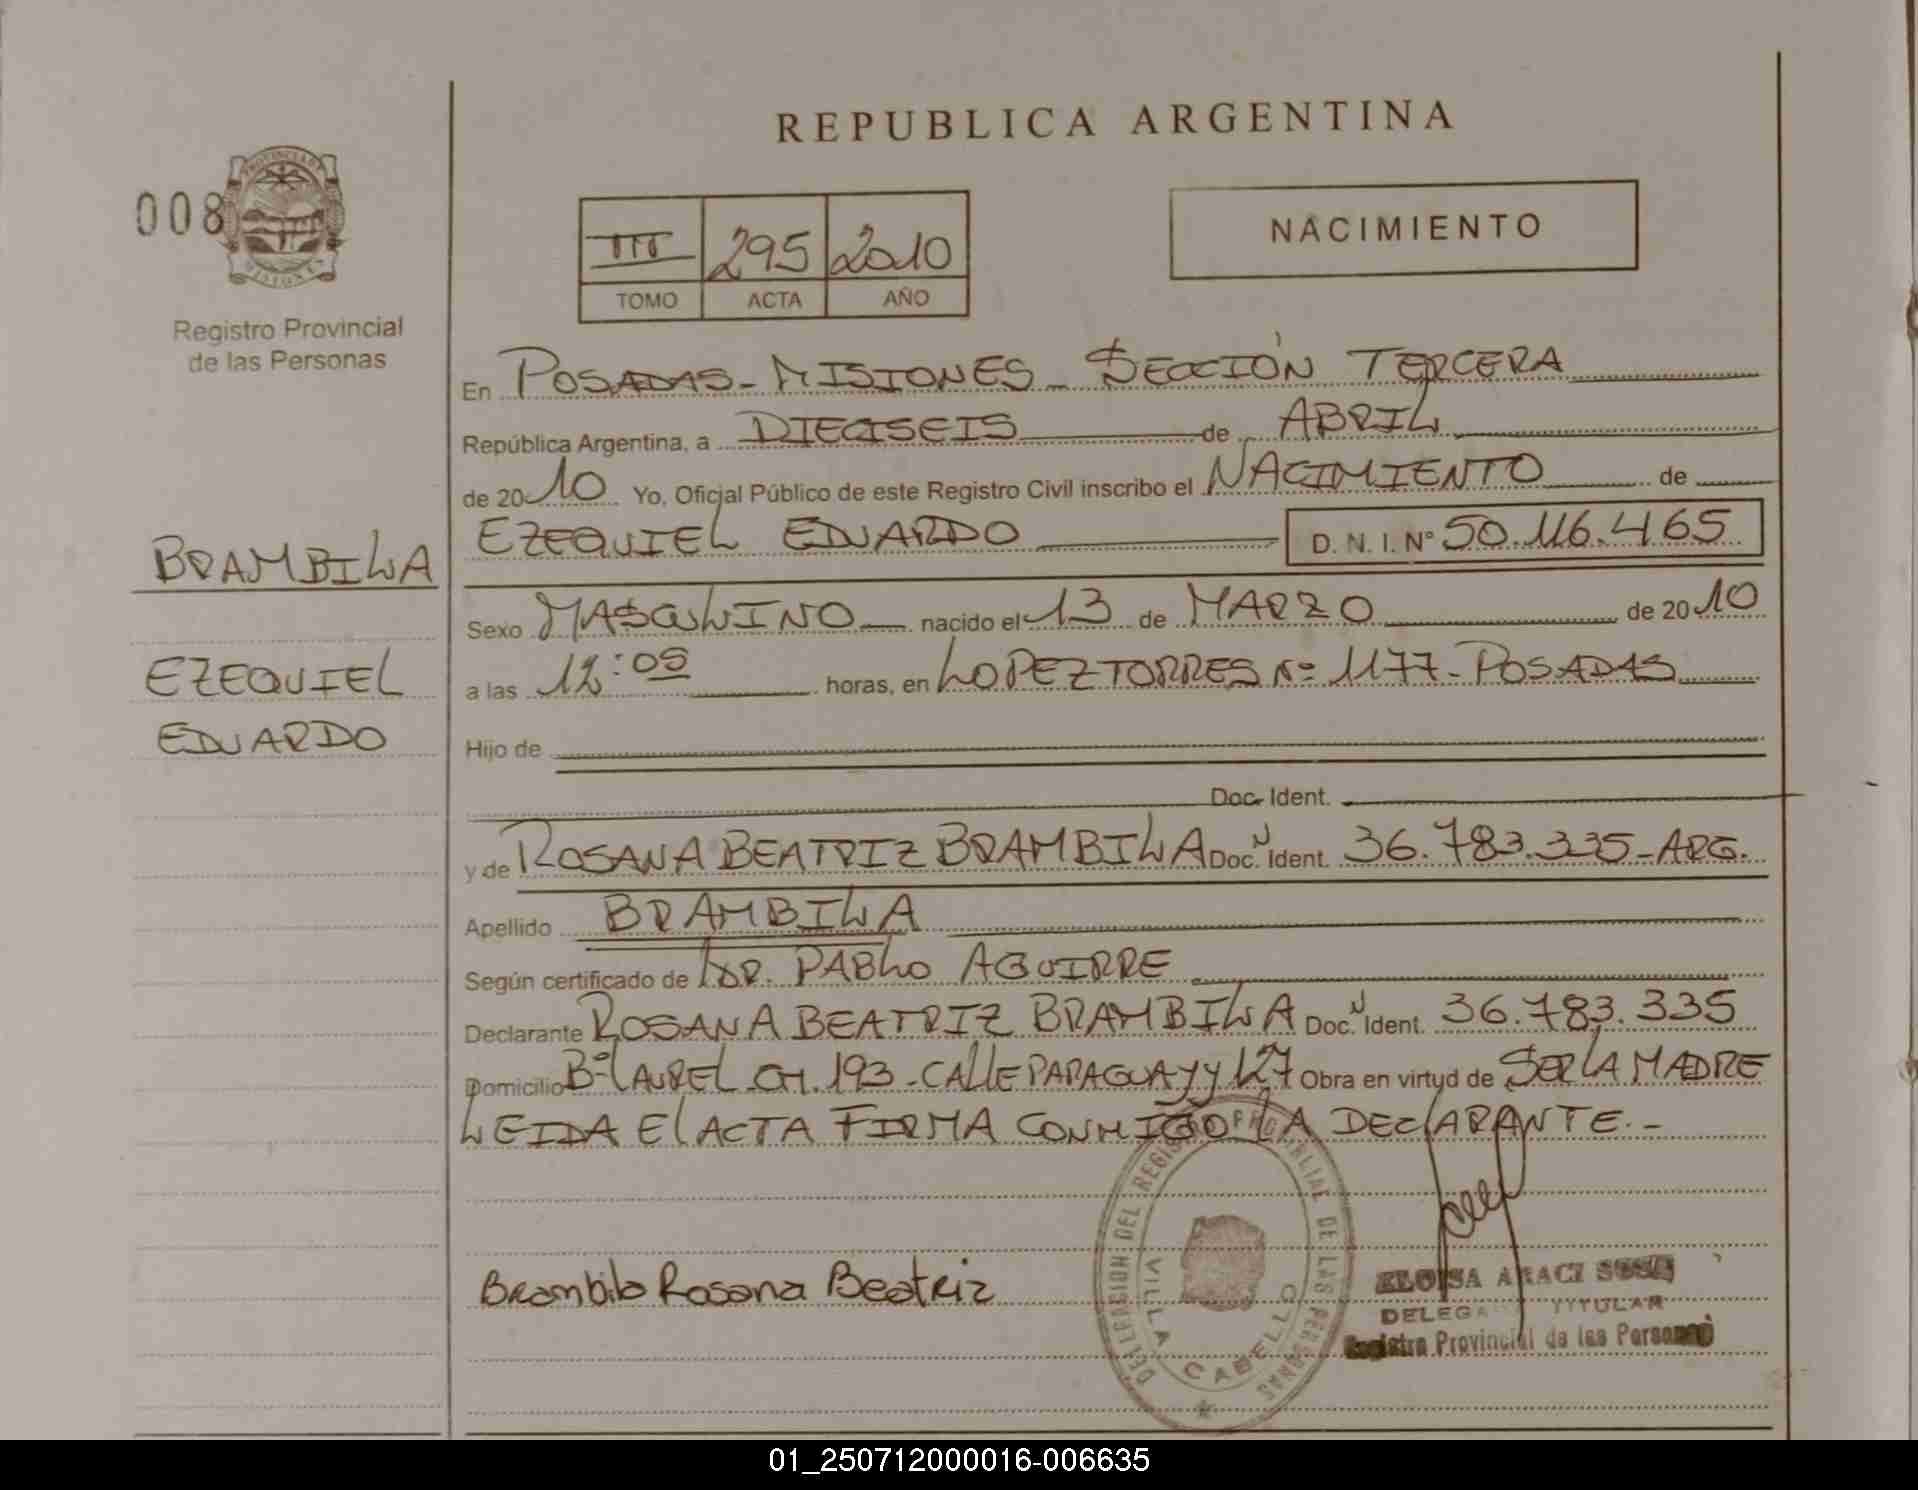 REPUBLICA ARGENTINA
008
PROVINCIA DE MISIONES
Registro Provincial
de las Personas
III 295 2010
TOMO ACTA AÑO
NACIMIENTO
En POSADAS - MISIONES - SECCIÓN TERCERA
República Argentina, a DIECISEIS de ABRIL
de 2010 Yo, Oficial Público de este Registro Civil inscribo el NACIMIENTO de
EZEQUIEL EDUARDO D. N. I. Nº 50.116.465
BRAMBILLA
Sexo MASCULINO nacido el 13 de MARZO de 2010
EZEQUIEL
a las 12:05 horas, en LOPEZ TORRES Nº 1177 - POSADAS
EDUARDO
Hijo de
Doc. Ident.
y de ROSANA BEATRIZ BRAMBILLA Doc. N Ident. 36.783.335 - ARG.
Apellido BRAMBILLA
Según certificado de DR. PABLO AGUIRRE
Declarante ROSANA BEATRIZ BRAMBILLA Doc. N Ident. 36.783.335
Domicilio Bº LAUREL CH. 193 - CALLE PARAGUAY y 127 Obra en virtud de SER LA MADRE
LEIDA El ACTA FIRMA CONMIGO LA DEClARANTE. -
DELEGACION DEL REGISTRO PROVINCIAL DE LAS PERSONAS
VILLA CABELLO
Brambila Rosana Beatriz
ELOISA ARACI SOSA
DELEGADA TITULAR
Registro Provincial de las Personas
01_250712000016-006635